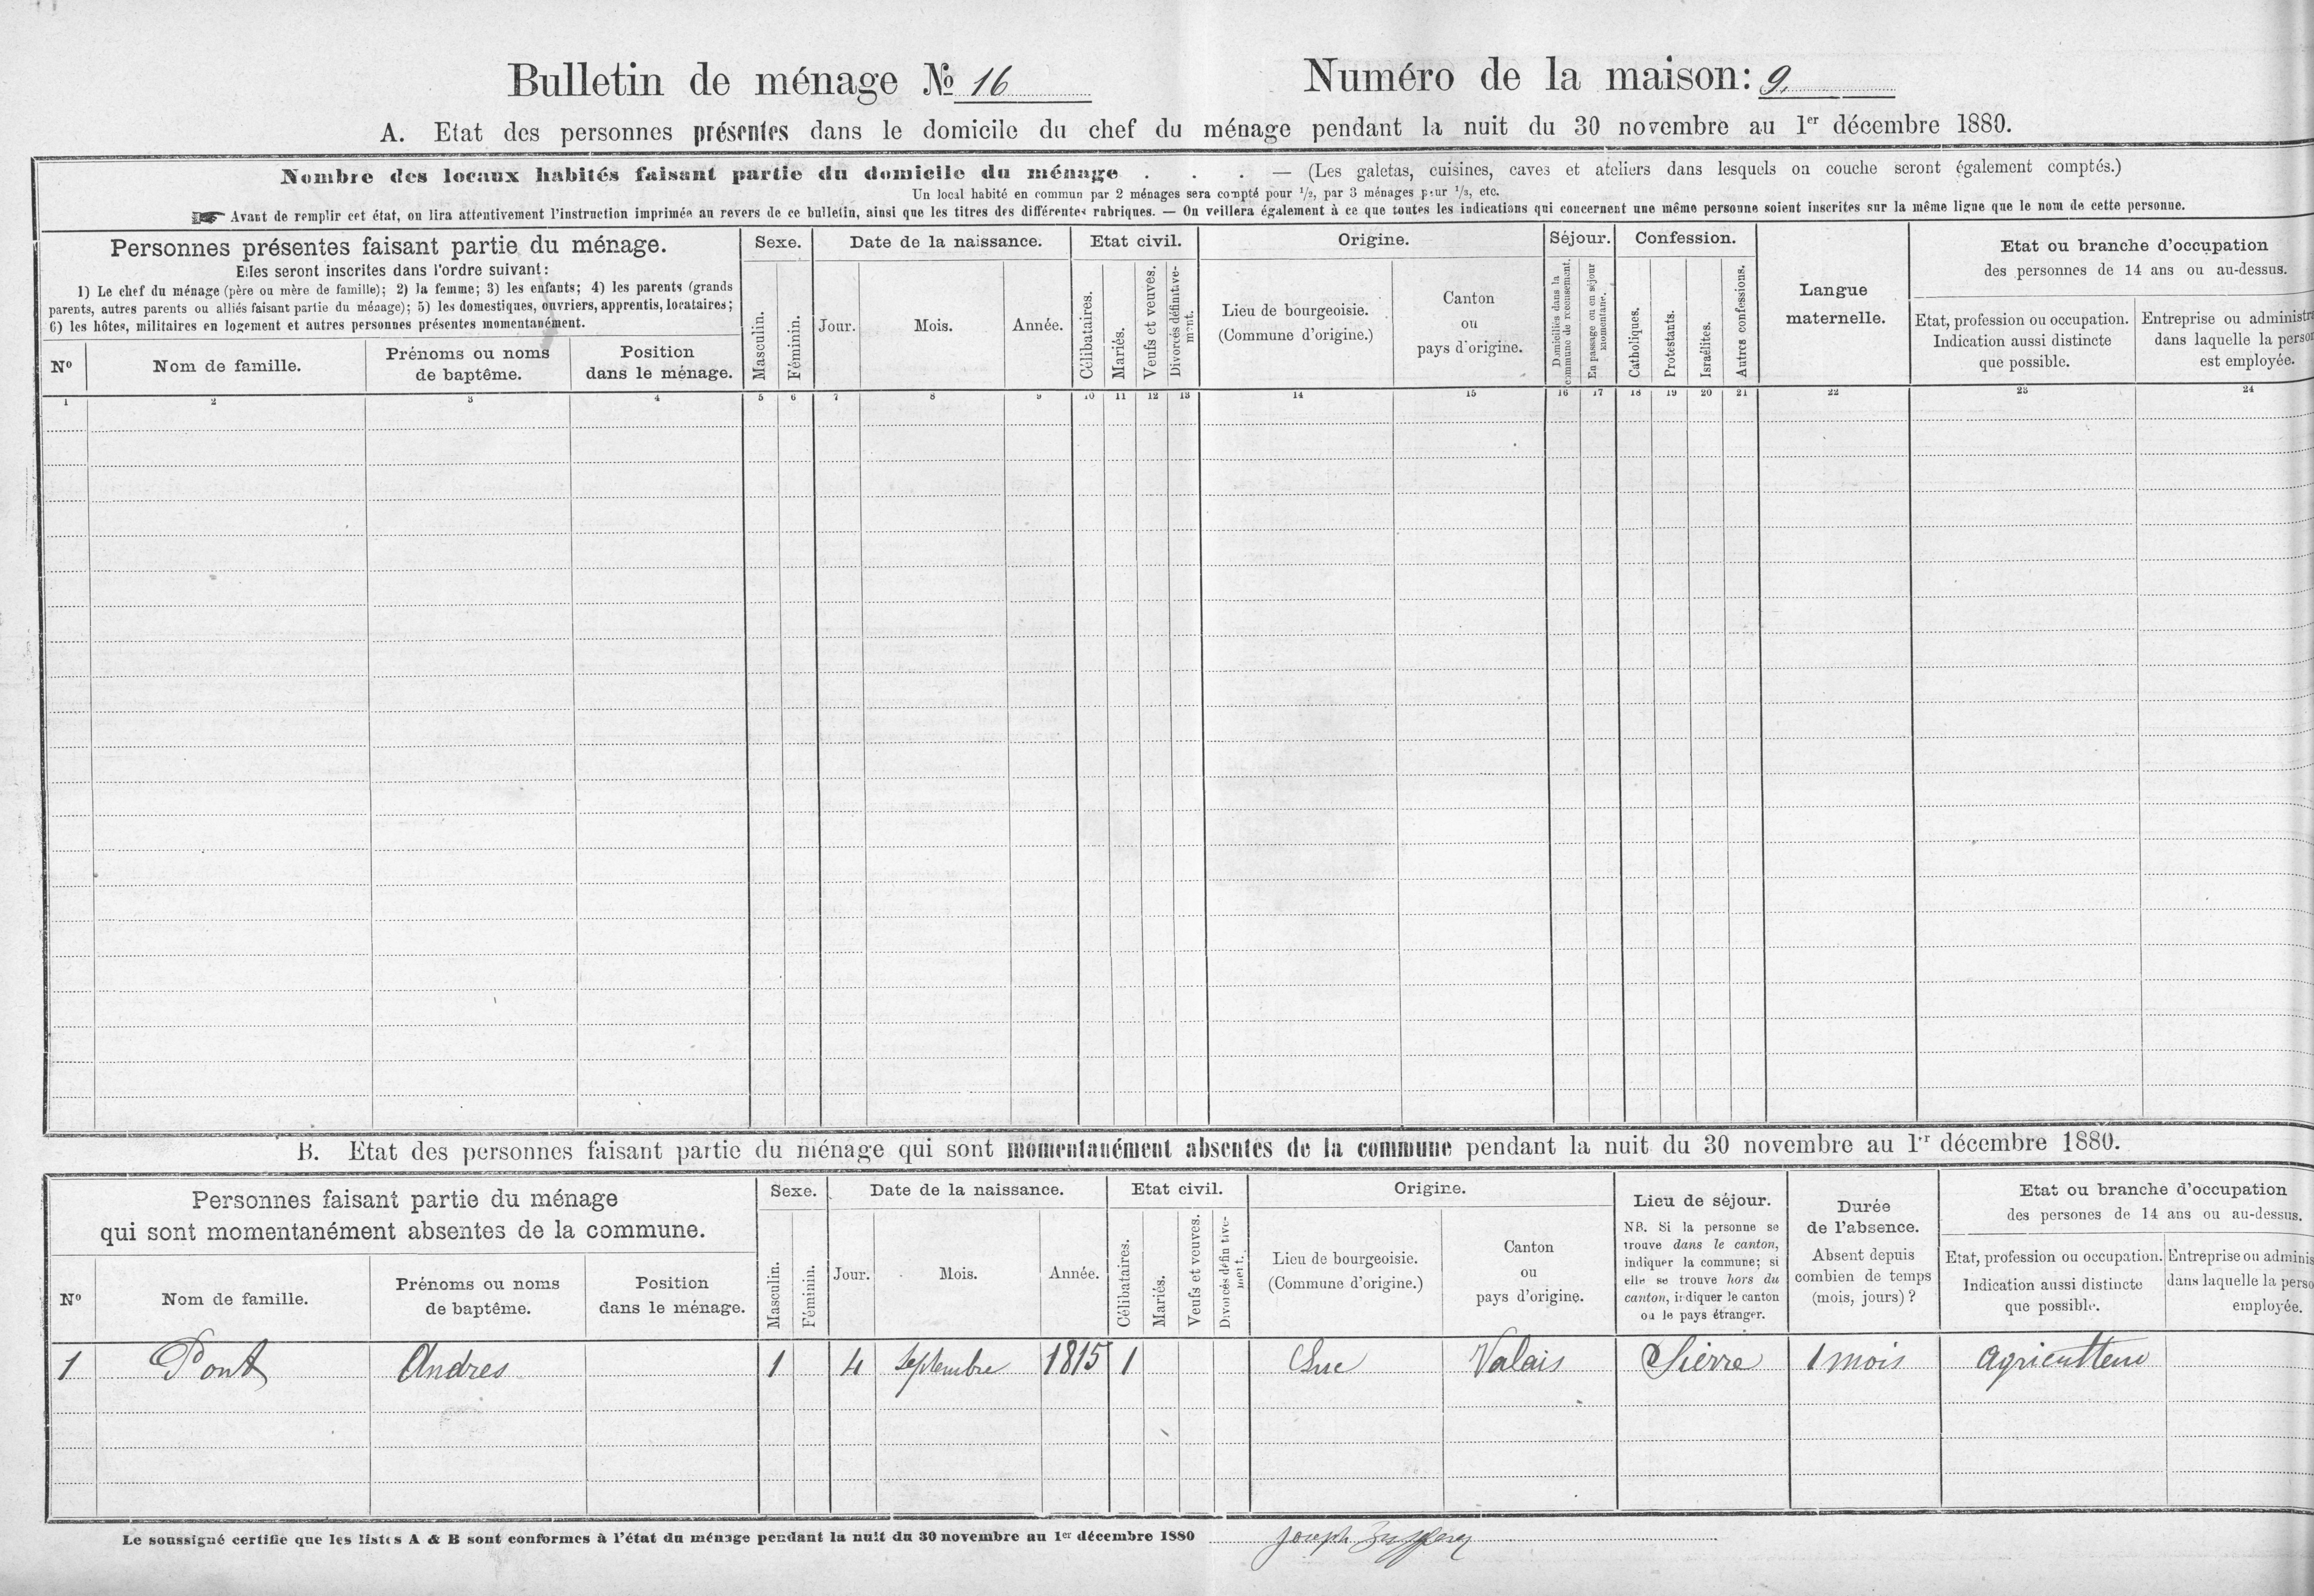 Bulletin de ménage № 16
Numéro de la maison: 9.
A. Etat des personnes présentes dans le domicile du chef du ménage pendant la nuit du 30 novembre au 1er décembre 1880.
Nombre des locaux habités faisant partie du domicile du ménage . . . — (Les galetas, cuisines, caves et ateliers dans lesquels on couche seront également comptés.)
Un local habité en commun par 2 ménages sera compté pour 1/2, par 3 ménages pour 1/3, etc.
☛ Avant de remplir cet état, on lira attentivement l'instruction imprimée au revers de ce bulletin, ainsi que les titres des différentes rubriques. — On veillera également à ce que toutes les indications qui concernent une même personne soient inscrites sur la même ligne que le nom de cette personne.
Personnes présentes faisant partie du ménage.
Elles seront inscrites dans l'ordre suivant:
1) Le chef du ménage (père ou mère de famille); 2) la femme; 3) les enfants; 4) les parents (grands
parents, autres parents ou alliés faisant partie du ménage); 5) les domestiques, ouvriers, apprentis, locataires;
6) les hôtes, militaires en logement et autres personnes présentes momentanément.
No
Nom de famille.
Prénoms ou noms
de baptême.
Position
dans le ménage.
Sexe.
Masculin.
Féminin.
Date de la naissance.
Jour.
Mois.
Année.
Etat civil.
Célibataires.
Mariés.
Veufs et veuves.
Divorcés définitive-
ment.
Origine.
Lieu de bourgeoisie.
(Commune d'origine.)
Canton
ou
pays d'origine.
Séjour.
Domiciliés dans la
commune de recensement.
En passage ou en séjour
momentané.
Confession.
Catholiques.
Protestants.
Israélites.
Autres confessions.
Langue
maternelle.
Etat ou branche d'occupation
des personnes de 14 ans ou au-dessus.
Etat, profession ou occupation.
Indication aussi distincte
que possible.
Entreprise ou administr
dans laquelle la person
est employée.
1 2 3 4 5 6 7 8 9 10 11 12 13 14 15 16 17 18 19 20 21 22 23 24
B. Etat des personnes faisant partie du ménage qui sont momentanément absentes de la commune pendant la nuit du 30 novembre au 1er décembre 1880.
Personnes faisant partie du ménage
qui sont momentanément absentes de la commune.
No
Nom de famille.
Prénoms ou noms
de baptême.
Position
dans le ménage.
Sexe.
Masculin.
Féminin.
Date de la naissance.
Jour.
Mois.
Année.
Etat civil.
Célibataires.
Mariés.
Veufs et veuves.
Divorcés définitive-
ment.
Origine.
Lieu de bourgeoisie.
(Commune d'origine.)
Canton
ou
pays d'origine.
Lieu de séjour.
NB. Si la personne se
trouve dans le canton,
indiquer la commune; si
elle se trouve hors du
canton, indiquer le canton
ou le pays étranger.
Durée
de l'absence.
Absent depuis
combien de temps
(mois, jours)?
Etat ou branche d'occupation
des persones de 14 ans ou au-dessus.
Etat, profession ou occupation.
Indication aussi distincte
que possible.
Entreprise ou adminis
dans laquelle la perso
employée.
1 Pont Andres 1 4 Septembre 1815 1 Luc Valais Sierre 1 mois agriculteur
Le soussigné certifie que les listes A & B sont conformes à l'état du ménage pendant la nuit du 30 novembre au 1er décembre 1880 Joseph Zufferey